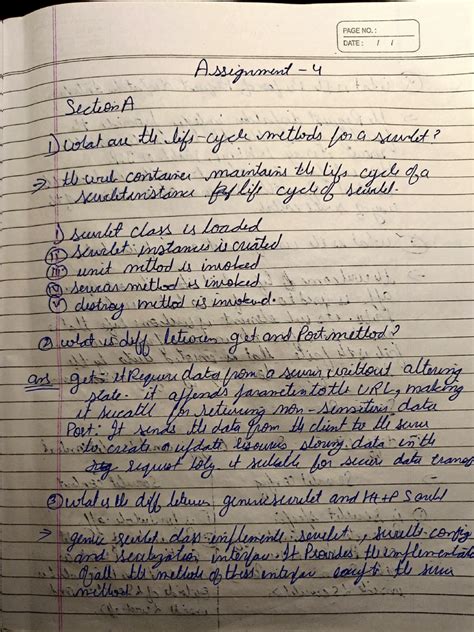 PAGE NO.:
DATE: / /
Assignment - 4
Section A
1) what are the life-cycle methods for a servlet?
⇒ the web container maintains the life cycle of a
servlet instance life cycle of servlet.
i) servlet class is loaded
ii) servlet instance is created
iii) init method is invoked
iv) service method is invoked
v) destroy method is invoked.
② what is diff between get and Post method?
ans get: it Require data from a server without altering
state. it appends parameter to the URL, making
it for retrieving non-sensitive data
Post: It sends the data from the client to the server
to create or update resources storing data in the
request body it suitable for secure data transf
③ what is the diff between generic servlet and Http Servlet
⇒ generic servlet class implements servlet, servlet config
and interface. It Provides the implementatio
of all the methods of these interface except the service
method